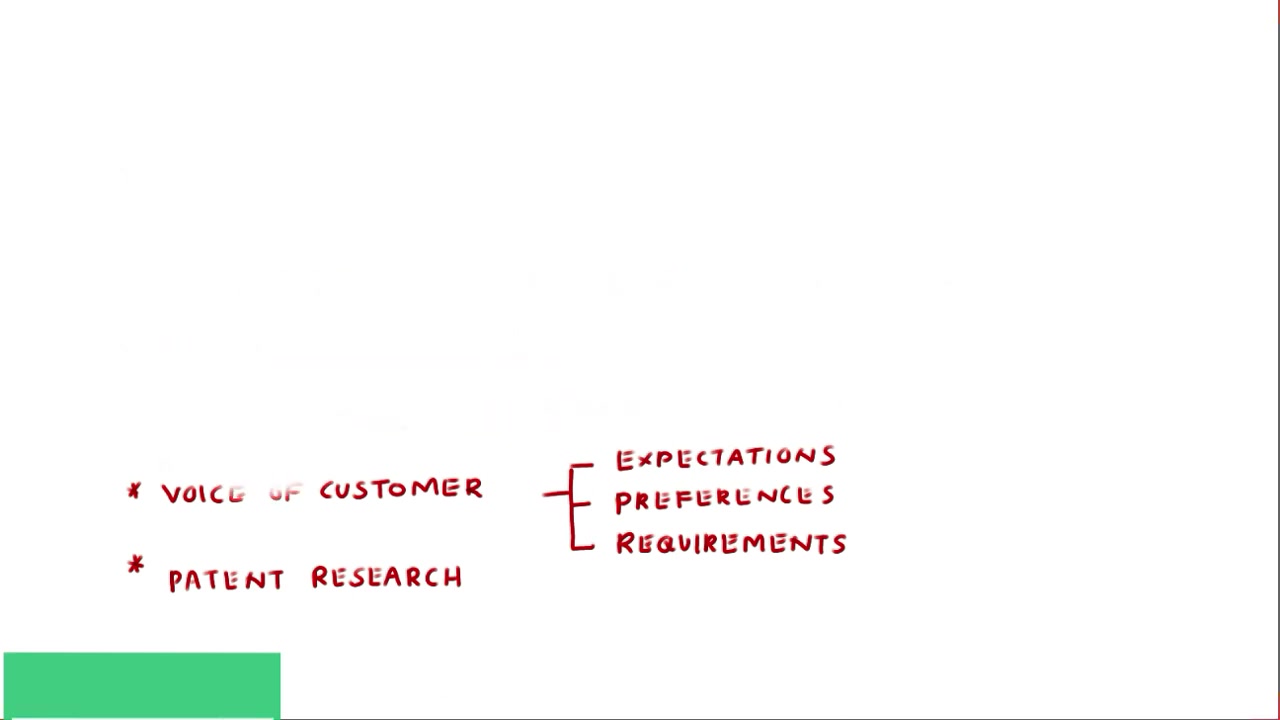 * VOICE OF CUSTOMER
EXPECTATIONS
PREFERENCES
REQUIREMENTS
* PATENT RESEARCH